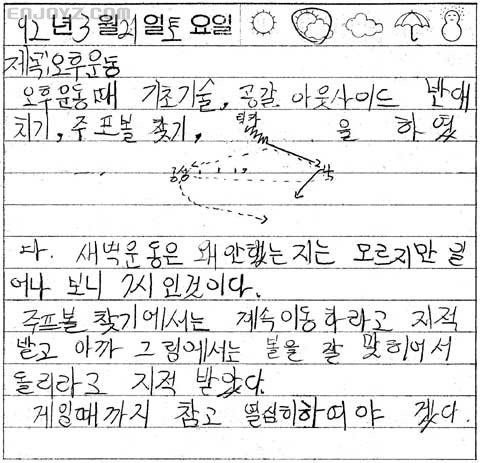 ENJOYZ.COM
92년 3월 21일 토요일
제목:오후운동
오후운동때 기초기술, 공갈, 아웃사이드 반대
치기, 루프볼 찾기, 을 하였
다. 새벽운동은 왜안했는지는 모르지만 일
어나 보니 7시 인것이다.
주프볼 찾기에서는 계속이동하라고 지적
받고 아까 그림에서는 볼을 잘 맞히어서
돌리라고 지적 받았다.
게임때까지 참고 열심히하여야 겠다.